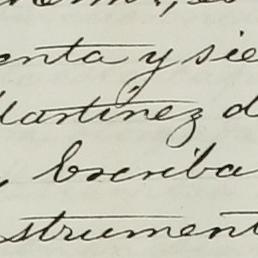 enta y sie
Martinez d
, Escriba
strument